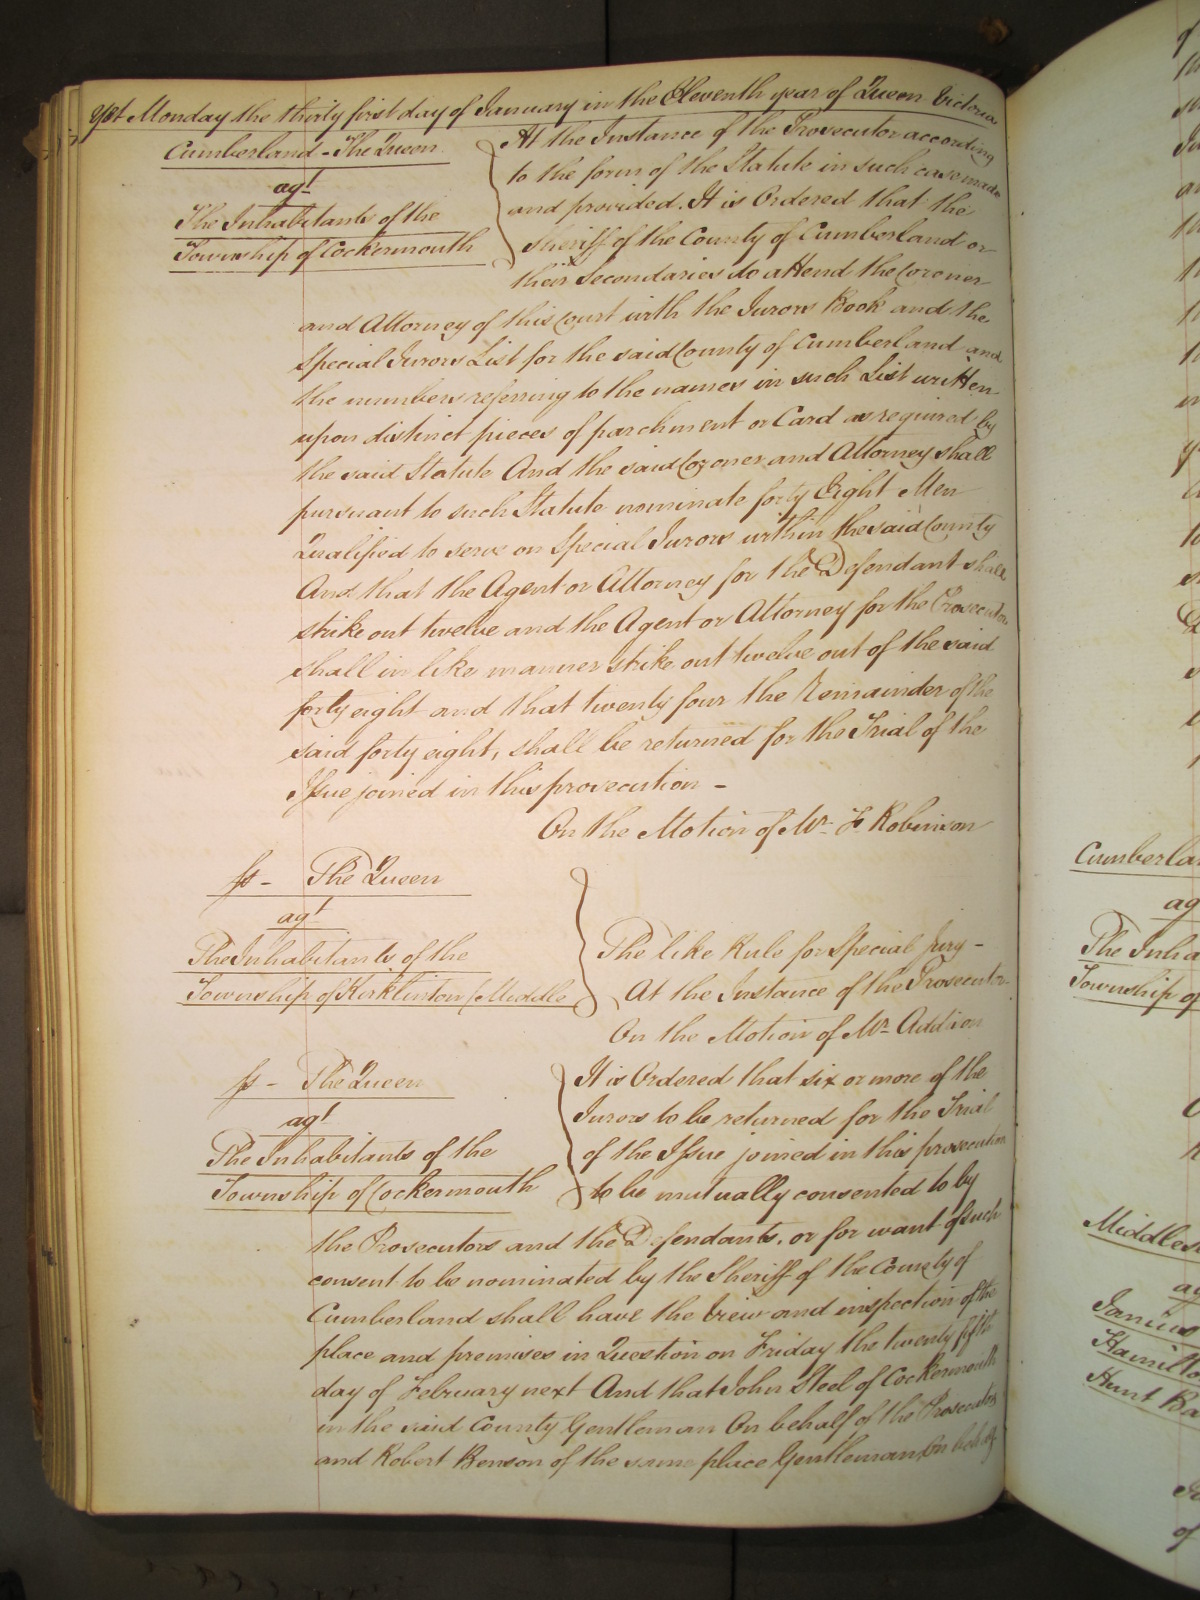 Yet Monday the thirty first day of January in the Eleventh year of Queen Victoria
Cumberland - The Queen
agt
The Inhabitants of the
Township of Cockermouth
At the Instance of the Prosecutor according
to the form of the Statute in such case made
and provided. It is Ordered that the
Sheriff of the County of Cumberland or
their Secondaries do attend the Coroner
and Attorney of this Court with the Jurors Book and the
Special Jurors List for the said County of Cumberland and
the numbers referring to the names in such List written
upon distinct pieces of parchment or Card as required by
the said Statute And the said Coroner and Attorney shall
pursuant to such Statute nominate forty Eight Men
Qualified to serve on Special Jurors within the said County
And that the Agent or Attorney for the Defendant shall
strike out twelve and the Agent or Attorney for the Prosecutor
shall in like manner strike out twelve out of the said
forty eight and that twenty four the Remainder of the
said forty eight, shall be returned for the Trial of the
Issue joined in this prosecution -
On the Motion of Mr. F. Robinson
Ss - The Queen
agt
The Inhabitants of the
Township of Kirklinton Middle
The like Rule for Special Jury -
At the Instance of the Prosecutor
On the Motion of Mr. Addison
Ss - The Queen
agt
The Inhabitants of the
Township of Cockermouth
It is Ordered that six or more of the
Jurors to be returned for the Trial
of the Issue joined in this prosecution
to be mutually consented to by
the Prosecutors and the Defendants, or for want of such
consent to be nominated by the Sheriff of the County of
Cumberland shall have the view and inspection of the
place and premises in Question on Friday the twenty fifth
day of February next And that John Steel of Cockermouth
in the said County Gentleman On behalf of the Prosecutors
and Robert Benson of the same place Gentleman On behalf
Cumberla
ag
The Inha
Township of
Middlese
ag
Hamilto
Hunt Ba